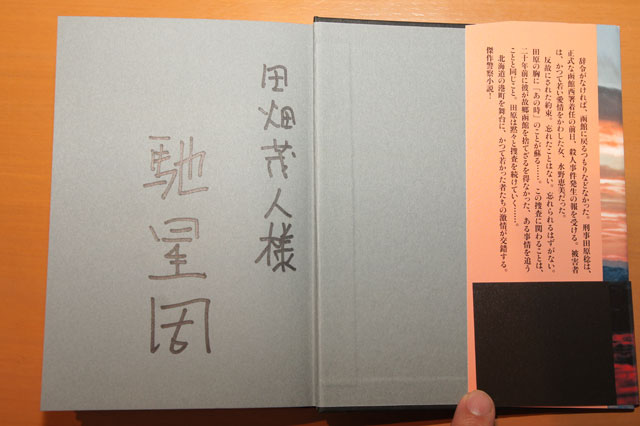 辞令がなければ、函館に戻るつもりなどなかった。刑事田原稔は、
正式な函館西署着任の前日、殺人事件発生の報を受ける。被害者
は、かつて若い愛情をかわした女、水野恵美だった。
反故にされた約束。忘れたことはない。忘れられるはずがない。
田原の胸に「あの時」のことが蘇る……。この捜査に関わることは、
二十年前に彼が故郷函館を捨てざるを得なかった、ある事情を追う
ことと同じこと。田原は黙々と捜査を続けていく……。
北海道の港町を舞台に、かつて若かった者たちの激情が交錯する。
傑作警察小説!
田畑茂人様
馳星周